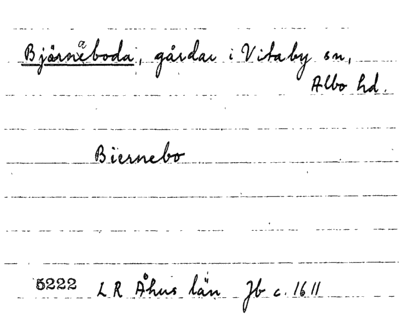 Bjärnaboda, gårdar i Vitaby sn,
Albo hd.
Biernebo
5222 LR Åhus län Jb c. 1611